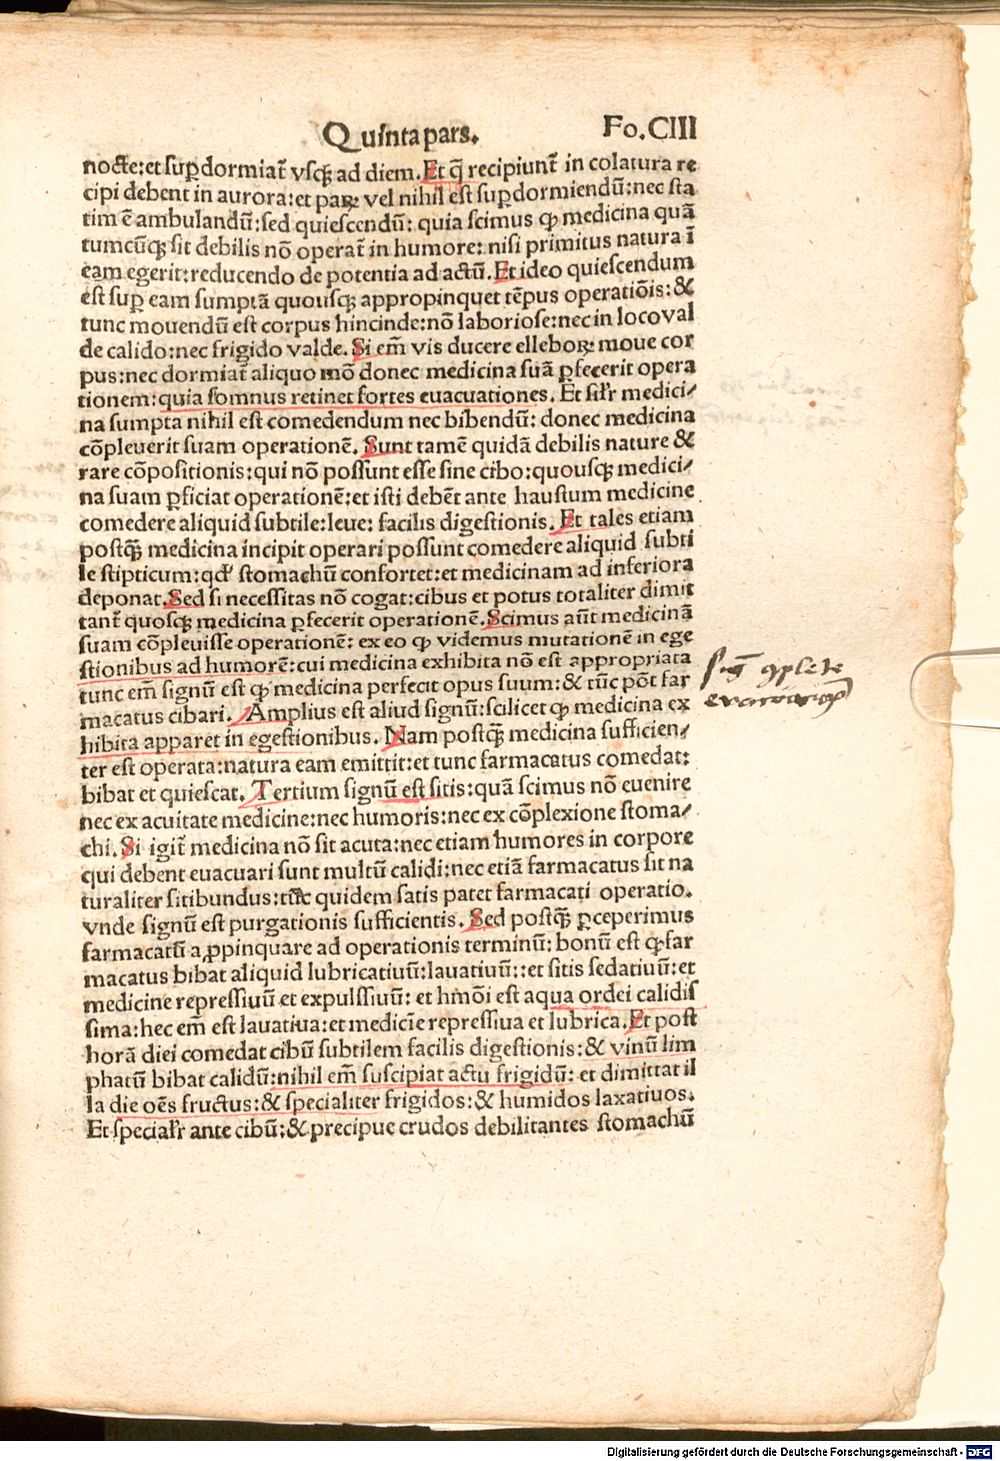 Quinta pars.
Fo.CIII
nocte:et suꝑdormiat᷑ vsqꝫ ad diem.Et q̄ recipiunt᷑ in colatura re
cipi debent in aurora:et paꝝ vel nihil est suꝑdormiendū:nec sta
tim ē ambulandū:sed quiescendū: quia scimus ꝙ medicina quā
tumcūqꝫ sit debilis nō operat᷑ in humore: nisi primitus natura ī
eam egerit:reducendo de potentia ad actū.Et ideo quiescendum
est suꝑ eam sumptā quousqꝫ appropinquet tēpus operatiōis:&
tunc mouendū est corpus hincinde:nō laboriose:nec in loco val
de calido:nec frigido valde.Si em̄ vis ducere elleboꝝ moue cor
pus:nec dormiat᷑ aliquo mō donec medicina suā ꝑfecerit opera
tionem:quia somnus retinet fortes euacuationes. Et sil'r medici/
na sumpta nihil est comedendum nec bibendū: donec medicina
cōpleuerit suam operationē. Sunt tamē quidā debilis nature &
rare cōpositionis:qui nō possunt esse sine cibo:quousqꝫ medici/
na suam ꝑficiat operationē:et isti debēt ante haustum medicine
comedere aliquid subtile:leue: facilis digestionis. Et tales etiam
postqꝫ̄ medicina incipit operari possunt comedere aliquid subti
le stipticum:qd' stomachū confortet:et medicinam ad inferiora
deponat.Sed si necessitas nō cogat:cibus et potus totaliter dimit
tant᷑ quosqꝫ medicina ꝑfecerit operationē.Scimus aūt medicinā
suam cōpleuisse operationē: ex eo ꝙ videmus mutationē in ege
stionibus ad humorē:cui medicina exhibita nō est appropriata
tunc em̄ signū est ꝙ medicina perfecit opus suum:& tūc pōt far
macatus cibari. Amplius est aliud signū:scilicet ꝙ medicina ex
hibita apparet in egestionibus. Nam postqꝫ̄ medicina sufficien/
ter est operata:natura eam emittit:et tunc farmacatus comedat:
bibat et quiescat. Tertium signū est sitis:quā scimus nō euenire
nec ex acuitate medicine:nec humoris:nec ex cōplexione stoma/
chi. Si igit᷑ medicina nō sit acuta:nec etiam humores in corpore
qui debent euacuari sunt multū calidi:nec etiā farmacatus sit na
turaliter sitibundus:tūc quidem satis patet farmacati operatio.
vnde signū est purgationis sufficientis. Sed postqꝫ̄ ꝑceperimus
farmacatū aꝓpinquare ad operationis terminū: bonū est ꝙ far
macatus bibat aliquid lubricatiuū:lauatiuū::et sitis sedatiuū:et
medicine repressiuū et expulssiuū: et hmōi est aqua ordei calidis
sima:hec em̄ est lauatiua:et medicīe repressiua et lubrica.Et post
horā diei comedat cibū subtilem facilis digestionis:& vinū lim
phatū bibat calidū:nihil em̄ suscipiat actu frigidū: et dimittat il
la die oēs fructus:& specialiter frigidos:& humidos laxatiuos.
Et special'r ante cibū:& precipue crudos debilitantes stomachū
sig̅ ꝯplete
euacuationis
Digitalisierung gefördert durch die Deutsche Forschungsgemeinschaft - DFG